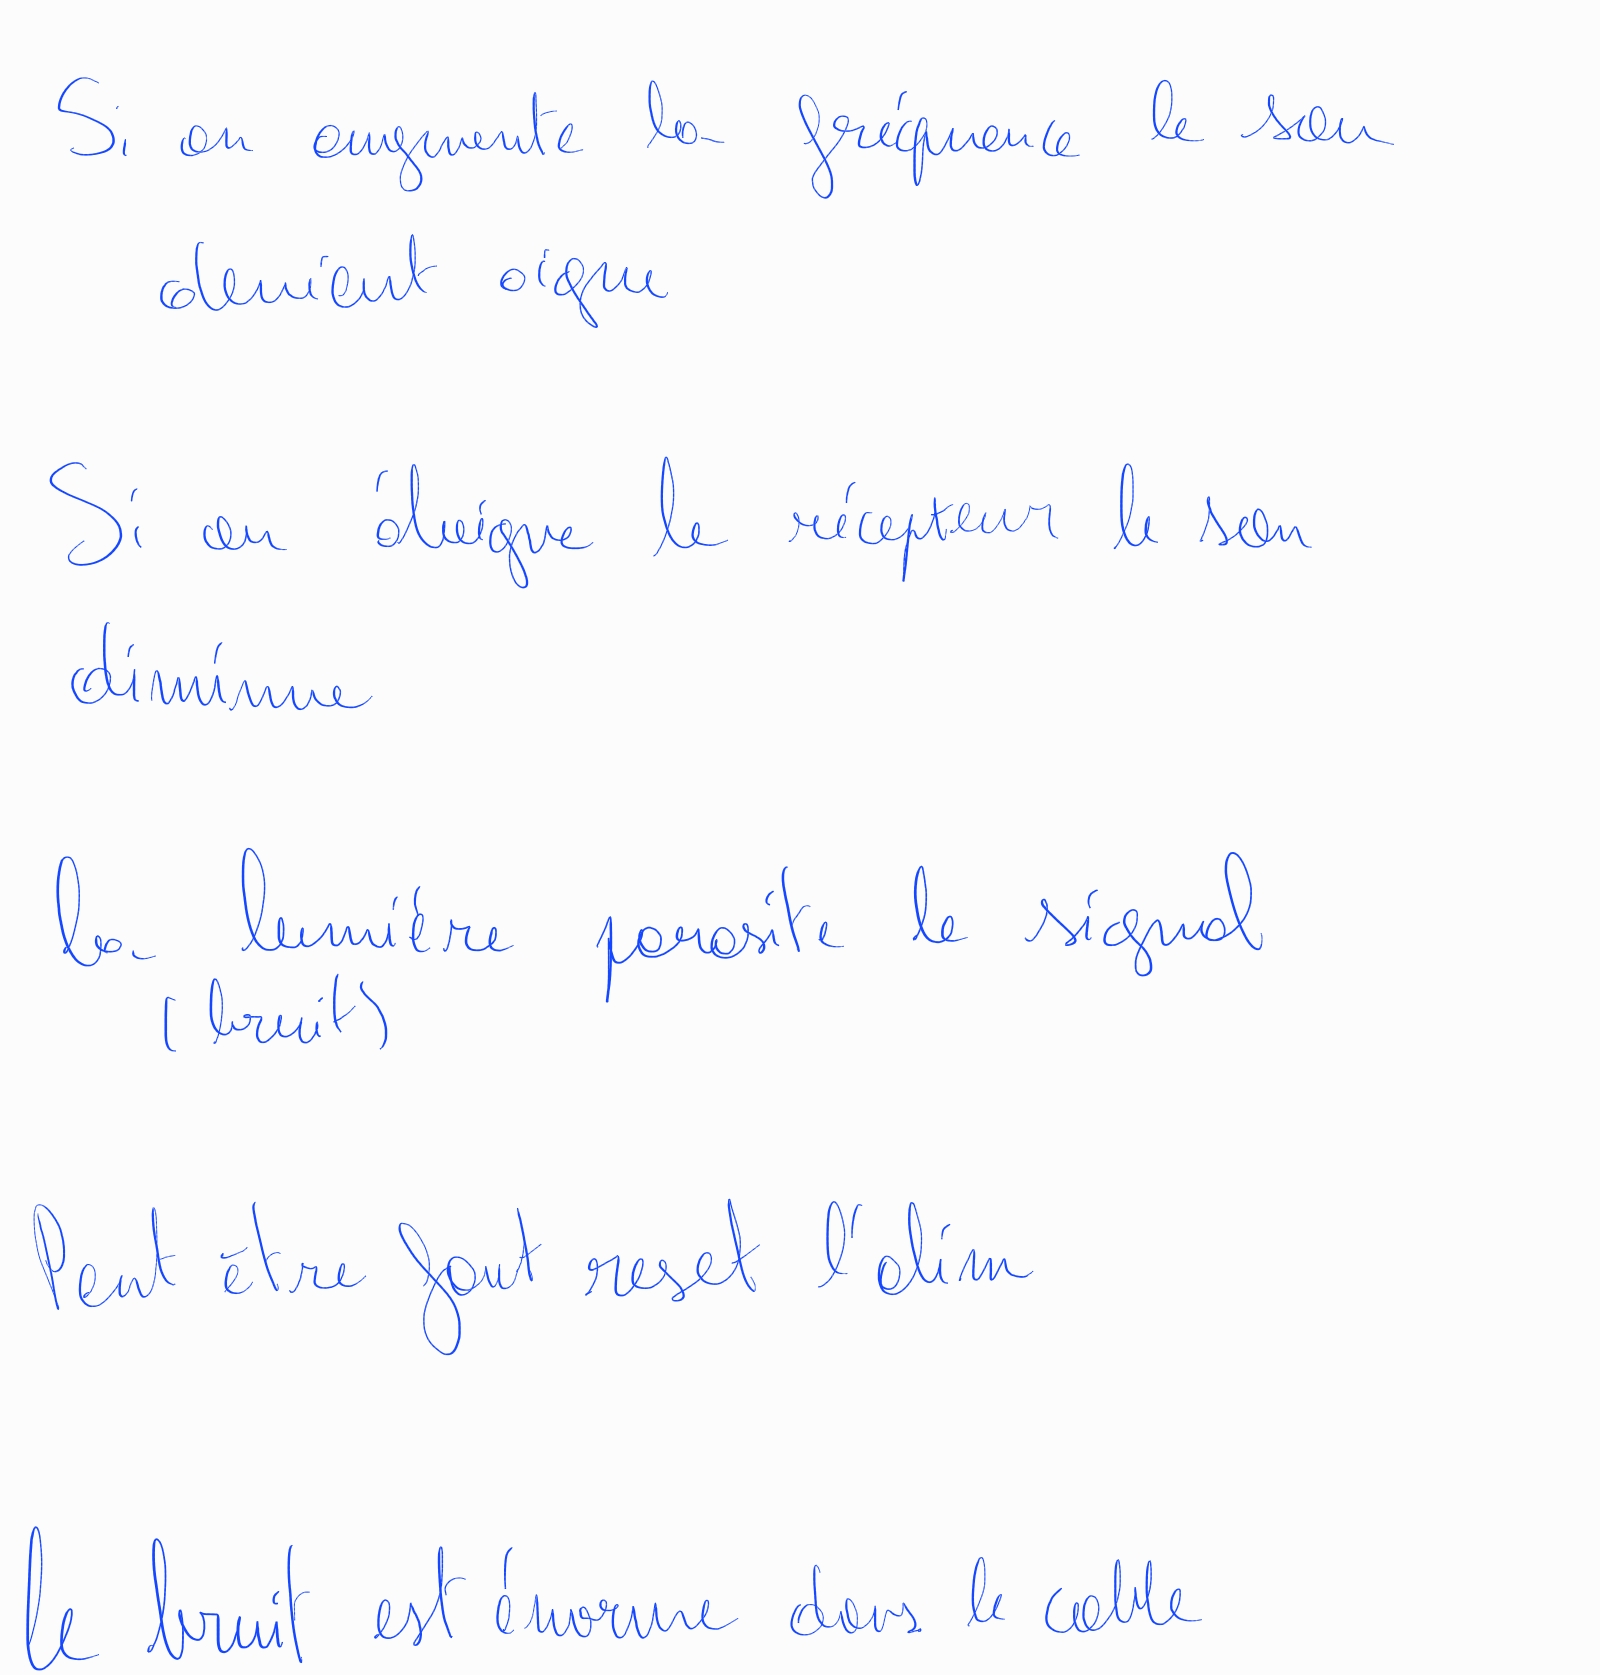 Si on augmente la fréquence le son
devient aigue
Si on éloigne le récepteur le son
diminue
la lumière parasite le signal
(bruit)
Peut être faut reset l'alim
le bruit est énorme dans le cable